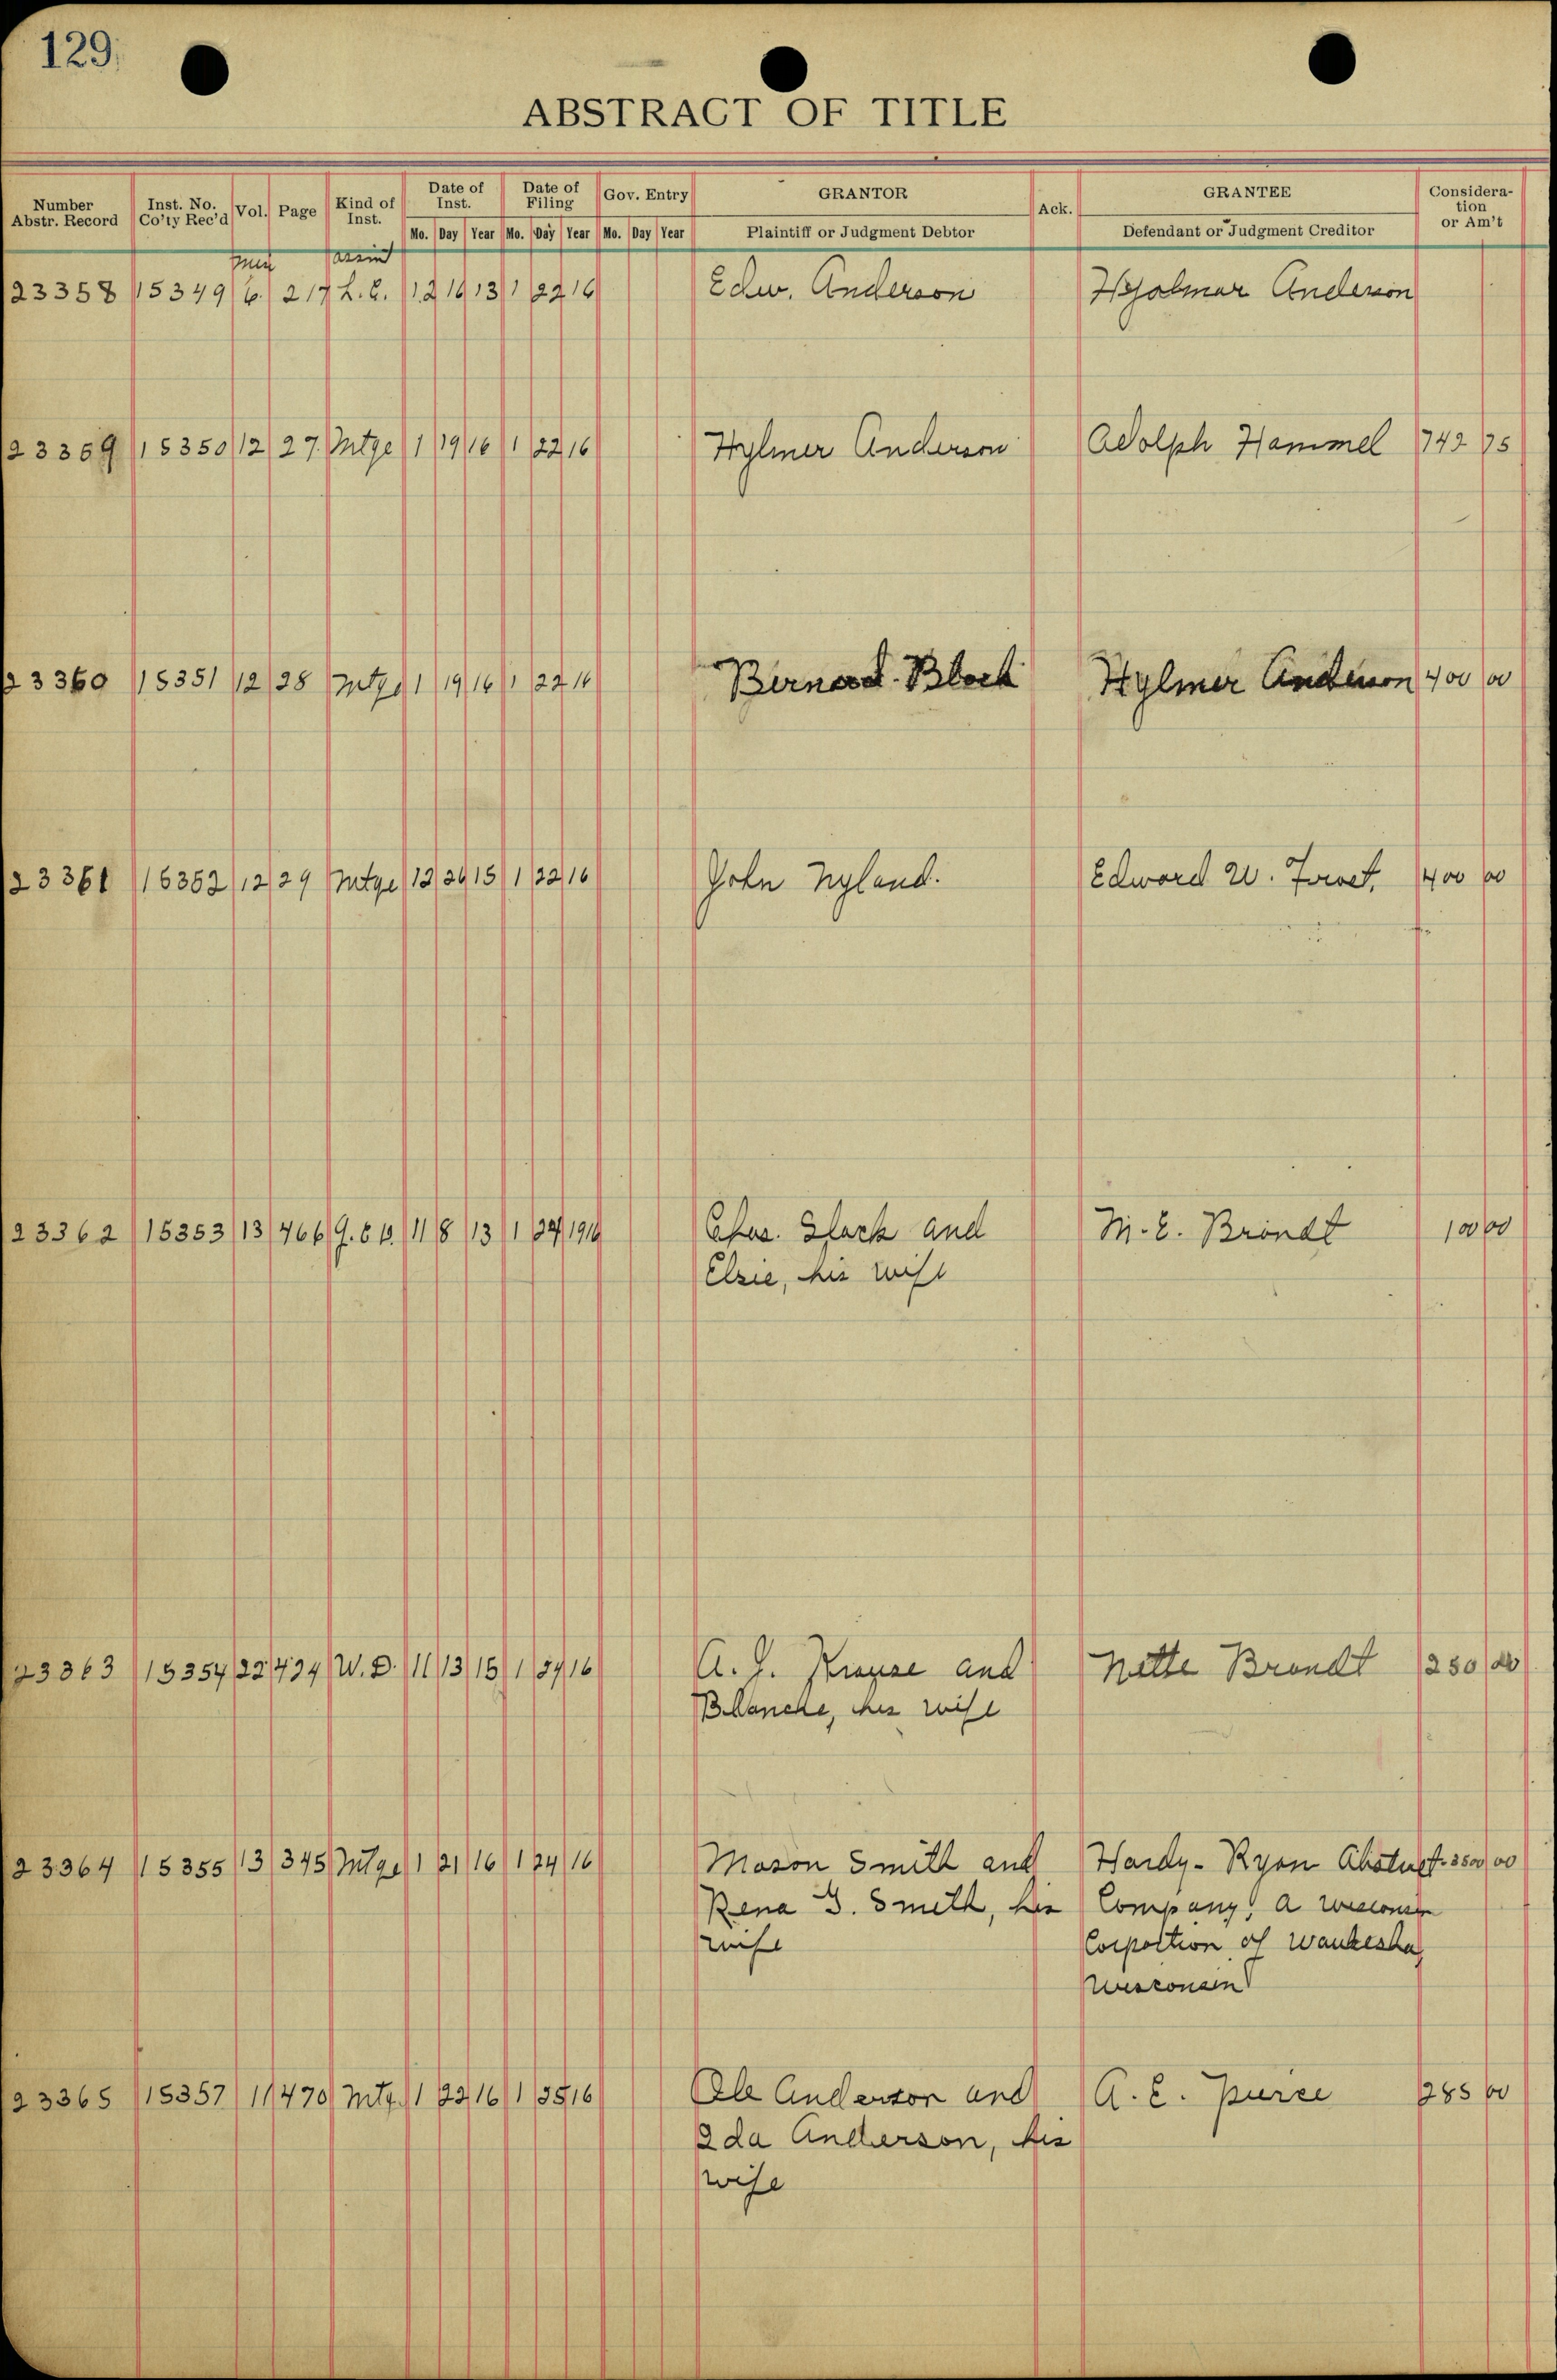 129
ABSTRACT OF TITLE
Number Abstr. Record Inst. No. Co'ty Rec'd Vol. Page Kind of Inst. Date of Inst. Date of Filing Gov. Entry GRANTOR Ack. GRANTEE Considera-tion or Am't
Mo. Day Year Mo. Day Year Mo. Day Year Plaintiff or Judgment Debtor Defendant or Judgment Creditor
23358 15349 6 217 L.C. 12 16 13 1 22 16 Edw. Anderson Hjalmar Anderson
23359 15350 12 27 Mtge 1 19 16 1 22 16 Hylmer Anderson Adolph Hammel 742 75
23360 15351 12 28 Mtge 1 19 16 1 22 16 Bernard Block Hylmer Anderson 400 00
23361 15352 12 29 Mtge 12 15 1 22 16 John Nyland. Edward W. 400 00
23362 15353 13 466 11 8 13 1 24 1916 Chas. Slack and M.E. Brandt 100 00
Elsie, his wife
23363 15354 22 424 W.D. 11 13 15 1 24 16 A.J. Krause and Nette Brandt 250 00
Blanche, his wife
23364 15355 13 345 Mtge 1 21 16 1 24 16 Mason Smith and Hardy-Ryan Abstract 3500 00
Rena G. Smith, his Company, a Wisconsin
wife Corportion of Waukesha,
Wisconsin
23365 15357 11 470 Mtg. 1 22 16 1 25 16 Ole Anderson and A.E. 285 00
Ida Anderson, his
wife